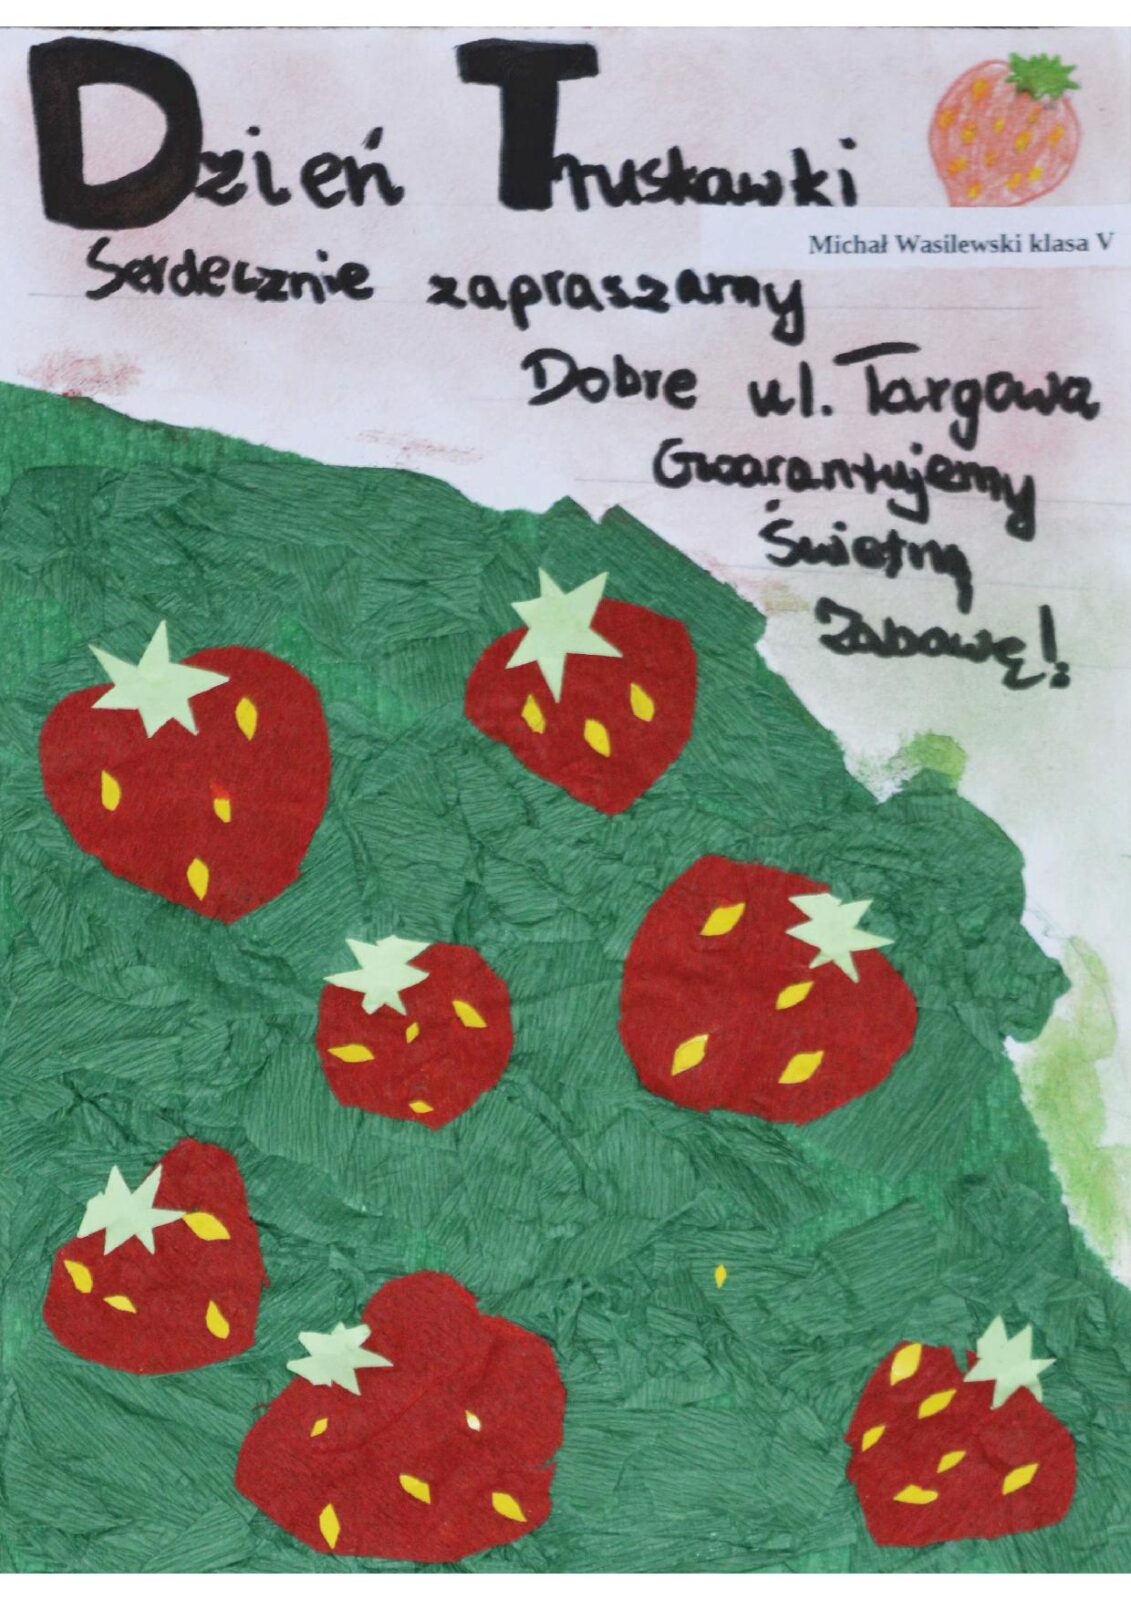 Dzień Truskawki
Michał Wasilewski klasa V
Serdecznie zapraszamy
Dobre ul. Targowa
Gwarantujemy
Świetną
Zabawę!